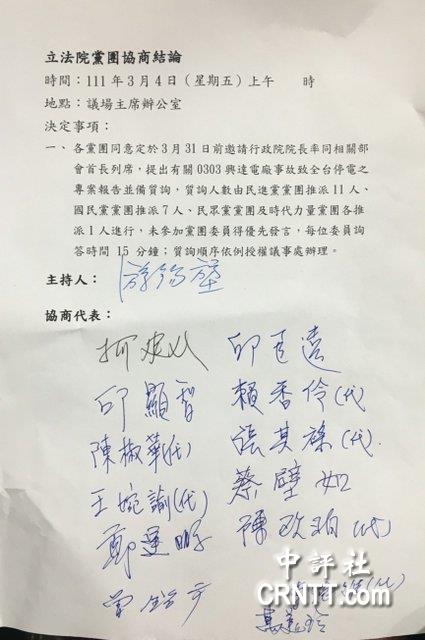 立法院黨團協商結論
時間：111 年 3 月 4 日（星期五）上午　　時
地點：議場主席辦公室
決定事項：
一、各黨團同意定於 3 月 31 日前邀請行政院院長率同相關部
會首長列席，提出有關 0303 興達電廠事故致全台停電之
專案報告並備質詢，質詢人數由民進黨黨團推派 11 人、
國民黨黨團推派 7 人、民眾黨黨團及時代力量黨團各推
派 1 人進行，未參加黨團委員得優先發言，每位委員詢
答時間 15 分鐘；質詢順序依例授權議事處辦理。
主持人：游錫堃
協商代表：
柯建銘 邱臣遠
邱顯智 賴香伶(代)
陳椒華(代) 張其祿(代)
王婉諭(代) 蔡壁如
鄭運鵬 陳歐珀(代)
曾銘宗
中評社
CRNTT.com